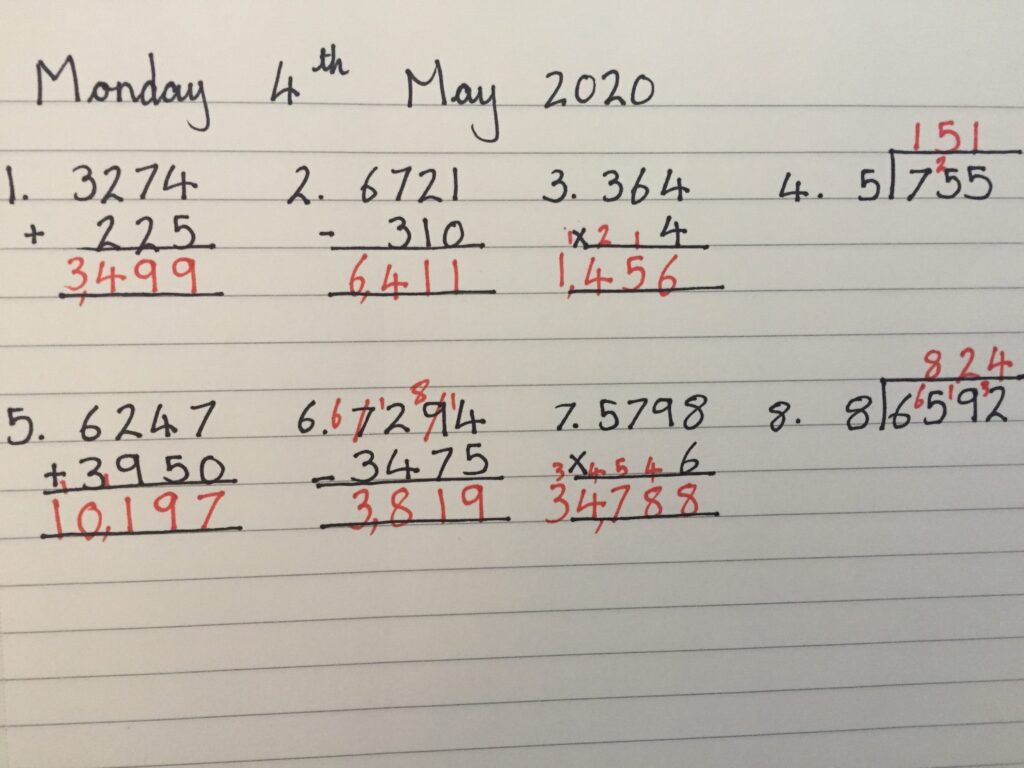 Monday 4th May 2020
151
1. 3274 2. 6721 3. 364 4. 5)7²55
+ 225 - 310 1x 2 1 4
3,499 6,411 1,456
8 824
5. 6247 6. 6 7 ¹2 9 ¹4 7. 5798 8. 8)6⁶5¹9³2
+ 3950 - 3475 3 x 4 5 4 6
1 1
10,197 3,819 34,788